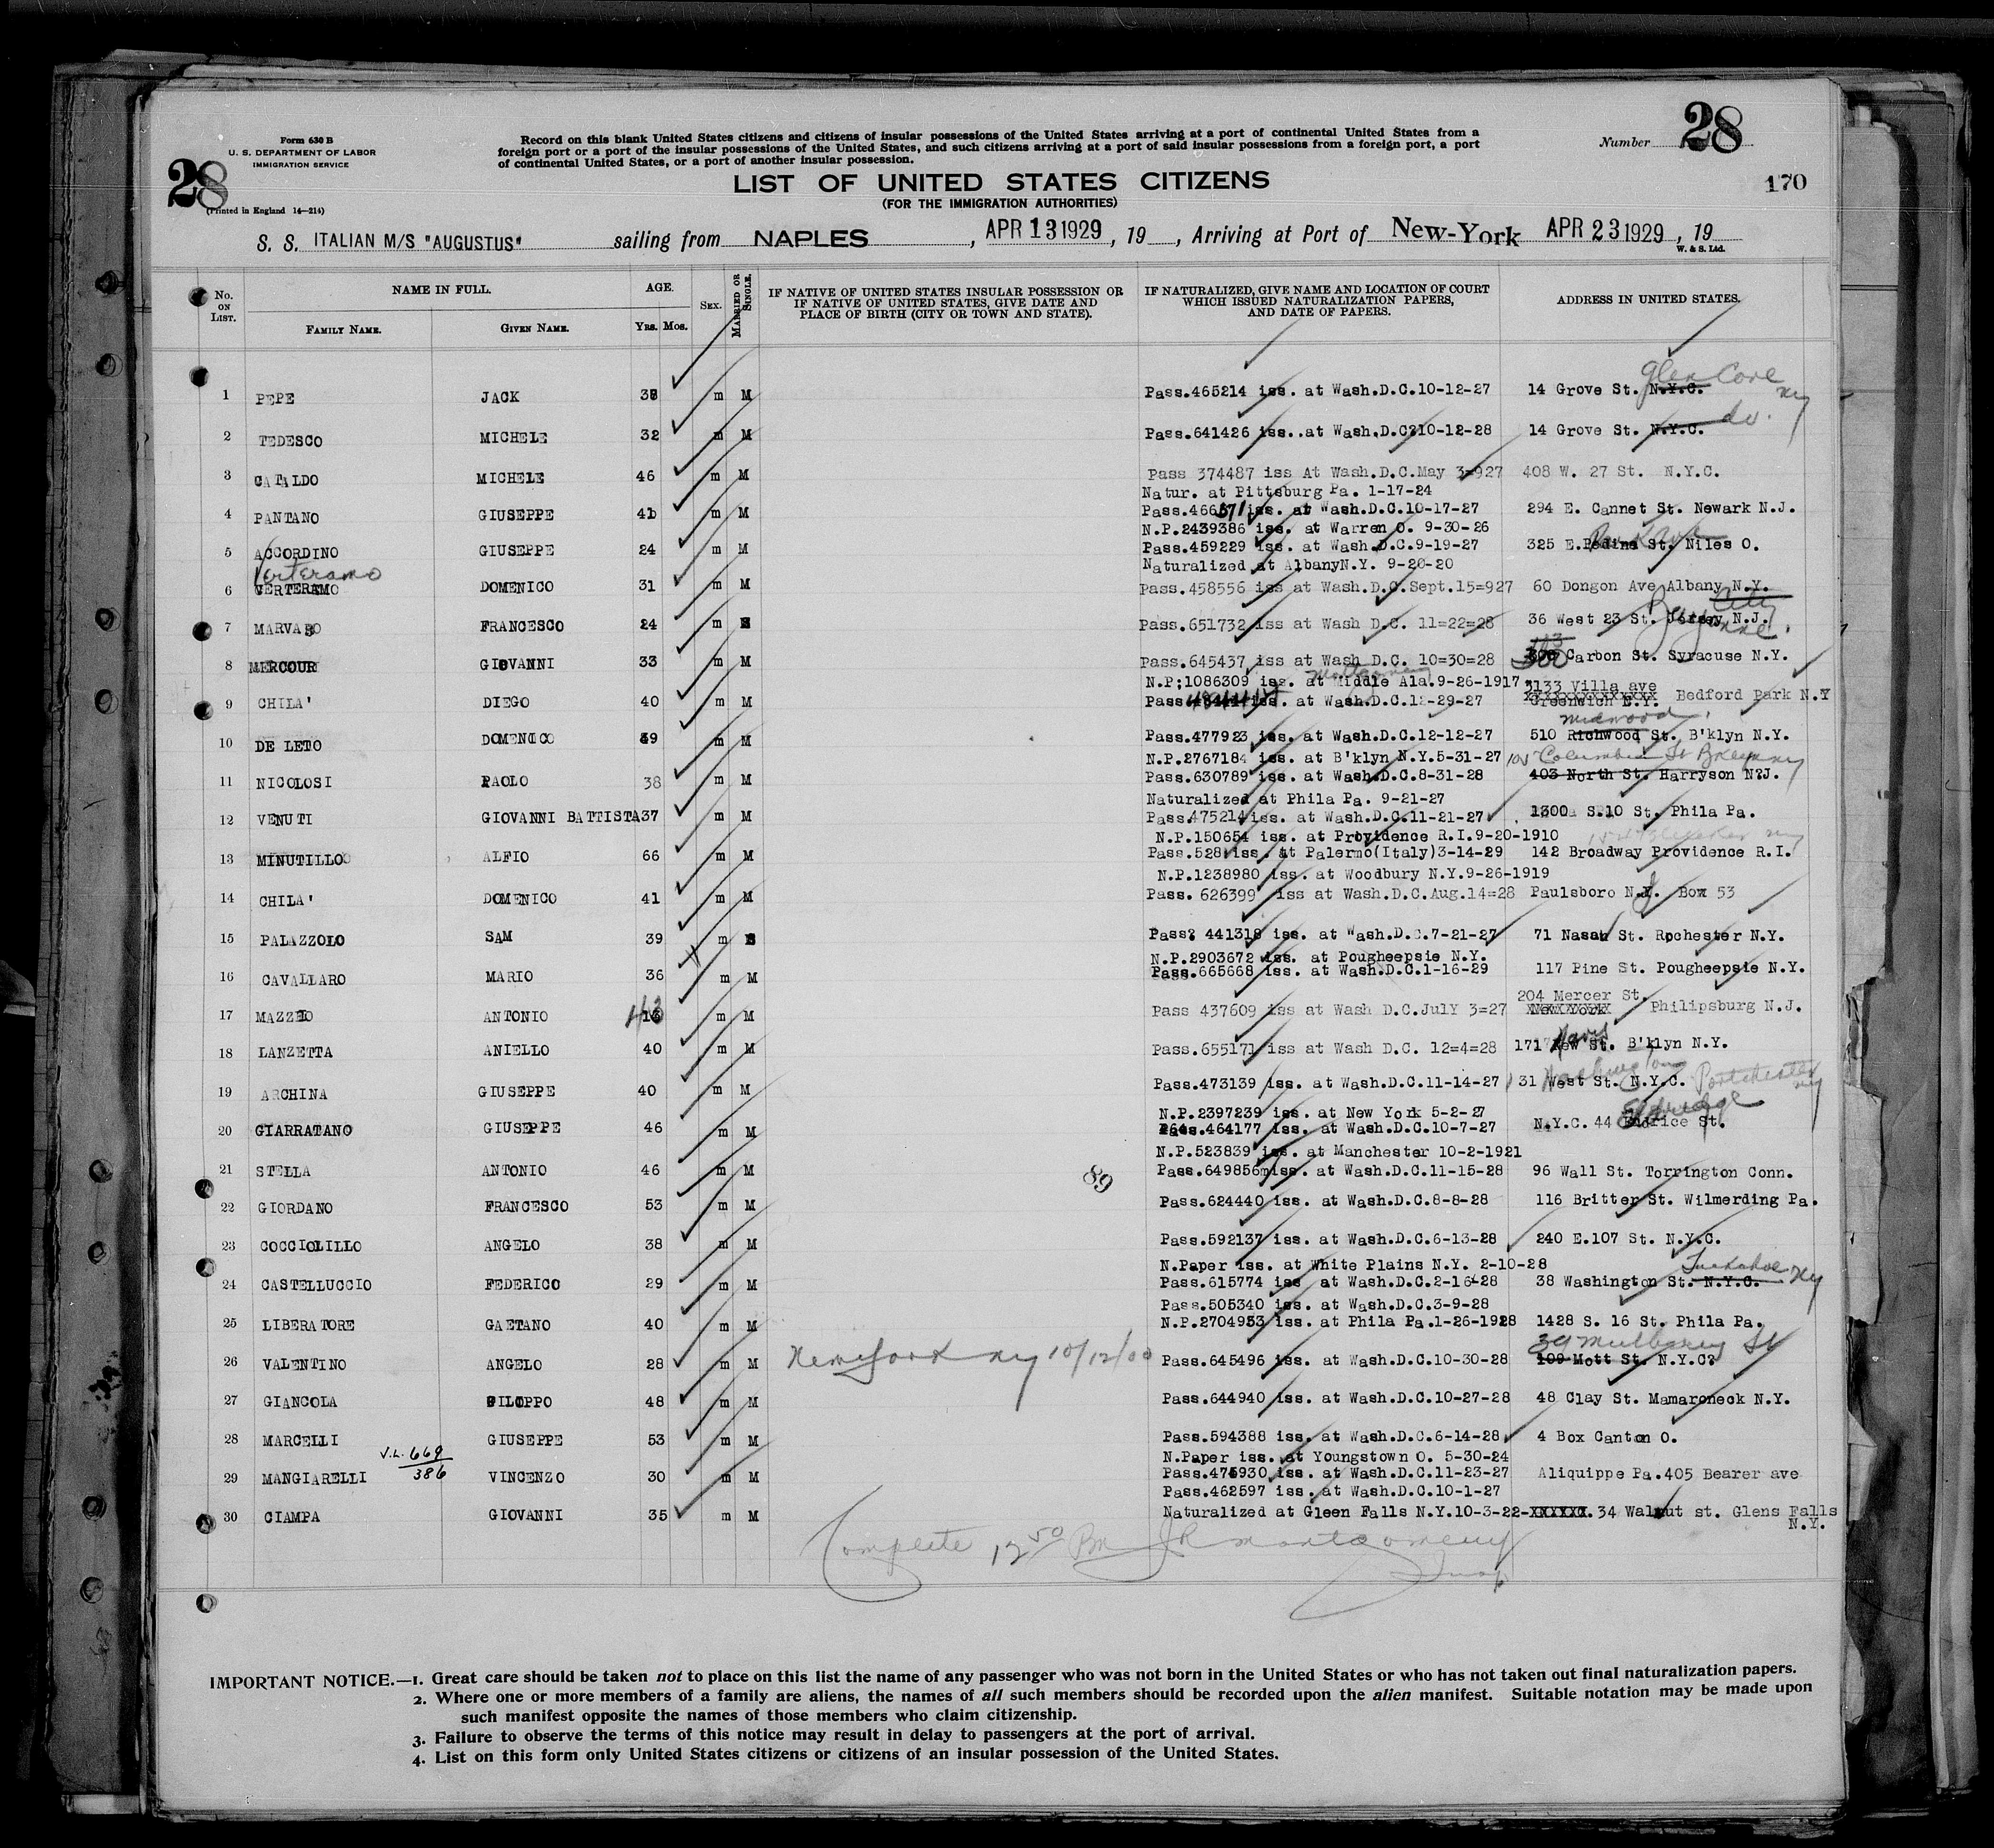 28
Form 630 B
U. S. DEPARTMENT OF LABOR
IMMIGRATION SERVICE
(Printed in England 14—214)
Record on this blank United States citizens and citizens of insular possessions of the United States arriving at a port of continental United States from a
foreign port or a port of the insular possessions of the United States, and such citizens arriving at a port of said insular possessions from a foreign port, a port
of continental United States, or a port of another insular possession.
Number 28
170
LIST OF UNITED STATES CITIZENS
(FOR THE IMMIGRATION AUTHORITIES)
S. S. ITALIAN M/S "AUGUSTUS" sailing from NAPLES, APR 13 1929, 19 , Arriving at Port of New-York APR 23 1929, 19
W. & S. Ltd.
No. ON LIST. NAME IN FULL. FAMILY NAME. GIVEN NAME. AGE. YRS. MOS. SEX. MARRIED OR SINGLE. IF NATIVE OF UNITED STATES INSULAR POSSESSION OR IF NATIVE OF UNITED STATES, GIVE DATE AND PLACE OF BIRTH (CITY OR TOWN AND STATE). IF NATURALIZED, GIVE NAME AND LOCATION OF COURT WHICH ISSUED NATURALIZATION PAPERS, AND DATE OF PAPERS. ADDRESS IN UNITED STATES.
Glen Cove
1 PEPE JACK 38 m M Pass.465214 iss. at Wash.D.C.10-12-27 14 Grove St. N.Y.C. NY
do.
2 TEDESCO MICHELE 32 m M Pass.641426 iss..at Wash.D.C?10-12-28 14 Grove St. N.Y.C.
3 CATALDO MICHELE 46 m M Pass 374487 iss At Wash.D.C.May 3=927 408 W. 27 St. N.Y.C.
Natur. at Pittsburg Pa. 1-17-24
4 PANTANO GIUSEPPE 41 m M Pass.466671 iss. at Wash.D.C.10-17-27 294 E. Cannet St. Newark N.J.
N.P.2439386 iss. at Warren O. 9-30-26
5 ACCORDINO GIUSEPPE 24 m M Pass.459229 iss. at Wash.D.C.9-19-27 325 E. St. Niles O.
Verteramo
Naturalized at AlbanyN.Y. 9-20-20
6 VERTERAMO DOMENICO 31 m M Pass.458556 iss at Wash.D.C.Sept.15=927 60 Dongon Ave Albany N.Y.
City
7 MARVASO FRANCESCO 24 m S Pass.651732 iss at Wash D.C. 11=22=28 36 West 23 St. Jersey N.J.
Bayonne.
8 MERCOURI GIOVANNI 33 m M Pass.645437 iss at Wash D.C. 10=30=28 Carbon St. Syracuse N.Y.
Montgomery
N.P;1086309 iss. at Middle Ala.9-26-1917 3133 Villa ave
9 CHILA' DIEGO 40 m M Pass. iss. at Wash.D.C.12-29-27 Greenwich N.Y. Bedford Park N.Y
Midwood
10 DE LETO DOMENICO 59 m M Pass.477923 iss. at Wash.D.C.12-12-27 510 Richwood St. B'klyn N.Y.
N.P.2767184 iss. at B'klyn N.Y.5-31-27 105 Columbia St Brklyn NY
11 NICOLOSI PAOLO 38 m M Pass.630789 iss. at Wash.D.C.8-31-28 403 North St. Harryson N?J.
Naturalized at Phila Pa. 9-21-27
12 VENUTI GIOVANNI BATTISTA 37 m M Pass.475214 iss. at Wash.D.C.11-21-27 1300 S.10 St. Phila Pa.
N.P.150654 iss. at Providence R.I.9-20-1910
13 MINUTILLO ALFIO 66 m M Pass.528 iss. at Palermo(Italy)3-14-29 142 Broadway Providence R.I.
N.P.1238980 iss. at Woodbury N.Y.9-26-1919
14 CHILA' DOMENICO 41 m M Pass. 626399 iss at Wash.D.C.Aug.14=28 Paulsboro N.J. Box 53
15 PALAZZOLO SAM 39 m S Pass? 441318 iss. at Wash.D.C.7-21-27 71 Nasau St. Rochester N.Y.
N.P.2903672 iss. at Pougheepsie N.Y.
16 CAVALLARO MARIO 36 m M Pass.665668 iss. at Wash.D.C.1-16-29 117 Pine St. Pougheepsie N.Y.
204 Mercer St.
17 MAZZEO ANTONIO 43 m M Pass 437609 iss at Wash D.C.JulY 3=27 New York Philipsburg N.J.
Navy
18 LANZETTA ANIELLO 40 m M Pass.655171 iss at Wash D.C. 12=4=28 171 New St. B'klyn N.Y.
Washington
19 ARCHINA GIUSEPPE 40 m M Pass.473139 iss. at Wash.D.C.11-14-27 31 West St. N.Y.C. Portchester NY
N.P.2397239 iss. at New York 5-2-27 Eldridge
20 GIARRATANO GIUSEPPE 46 m M Pass.464177 iss. at Wash.D.C.10-7-27 N.Y.C. 44 Eldrice St.
N.P.523839 iss. at Manchester 10-2-1921
21 STELLA ANTONIO 46 m M 89 Pass.649856 iss. at Wash.D.C.11-15-28 96 Wall St. Torrington Conn.
22 GIORDANO FRANCESCO 53 m M Pass.624440 iss. at Wash.D.C.8-8-28 116 Britter St. Wilmerding Pa.
23 COCCIOLILLO ANGELO 38 m M Pass.592137 iss. at Wash.D.C.6-13-28 240 E.107 St. N.Y.C.
N.Paper iss. at White Plains N.Y. 2-10-28 Tuckahoe NY
24 CASTELLUCCIO FEDERICO 29 m M Pass.615774 iss at Wash.D.C.2-16-28 38 Washington St. N.Y.C.
Pass.505340 iss. at Wash.D.C.3-9-28
25 LIBERATORE GAETANO 40 m M N.P.2704953 iss. at Phila Pa.1-26-1928 1428 S. 16 St. Phila Pa.
39 Mulberry St
26 VALENTINO ANGELO 28 m M New York NY 10/12/00 Pass.645496 iss. at Wash.D.C.10-30-28 109 Mott St. N.Y.C?
27 GIANCOLA FILIPPO 48 m M Pass.644940 iss. at Wash.D.C.10-27-28 48 Clay St. Mamaroneck N.Y.
28 MARCELLI GIUSEPPE 53 m M Pass.594388 iss. at Wash.D.C.6-14-28 4 Box Canton O.
V.L. 669/386
N.Paper iss. at Youngstown O. 5-30-24
29 MANGIARELLI VINCENZO 30 m M Pass.475930 iss. at Wash.D.C.11-23-27 Aliquippe Pa.405 Bearer ave
Pass.462597 iss. at Wash.D.C.10-1-27
30 CIAMPA GIOVANNI 35 m M Naturalized at Gleen Falls N.Y.10-3-22-XXXXXX.34 Walnut st. Glens Falls
N.Y.
Complete 12 50 PM JR Montgomery
Insp
IMPORTANT NOTICE.—1. Great care should be taken not to place on this list the name of any passenger who was not born in the United States or who has not taken out final naturalization papers.
2. Where one or more members of a family are aliens, the names of all such members should be recorded upon the alien manifest. Suitable notation may be made upon
such manifest opposite the names of those members who claim citizenship.
3. Failure to observe the terms of this notice may result in delay to passengers at the port of arrival.
4. List on this form only United States citizens or citizens of an insular possession of the United States.